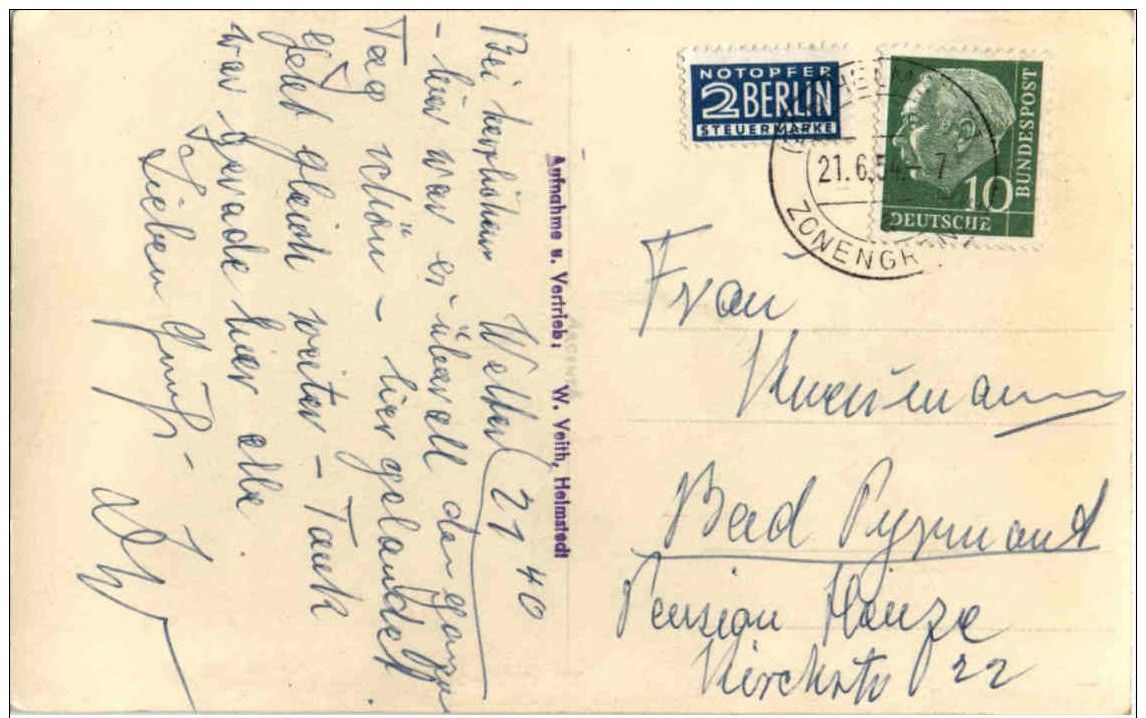 Bei herrlichem Wetter 21 40
- hier war es überall den ganzen
Tag schön - hier gelandet
Geht gleich weiter - Tank
war gerade hier alle.
Lieben Gruß -
Aufnahme u. Vertrieb: W. Veith, Helmstedt
NOTOPFER
2 BERLIN
STEUERMARKE
21.6.54. 7
ZONENGR
10
DEUTSCHE
BUNDESPOST
Frau
Bad Pyrmont
Pension Heinze
Kirchstr 22